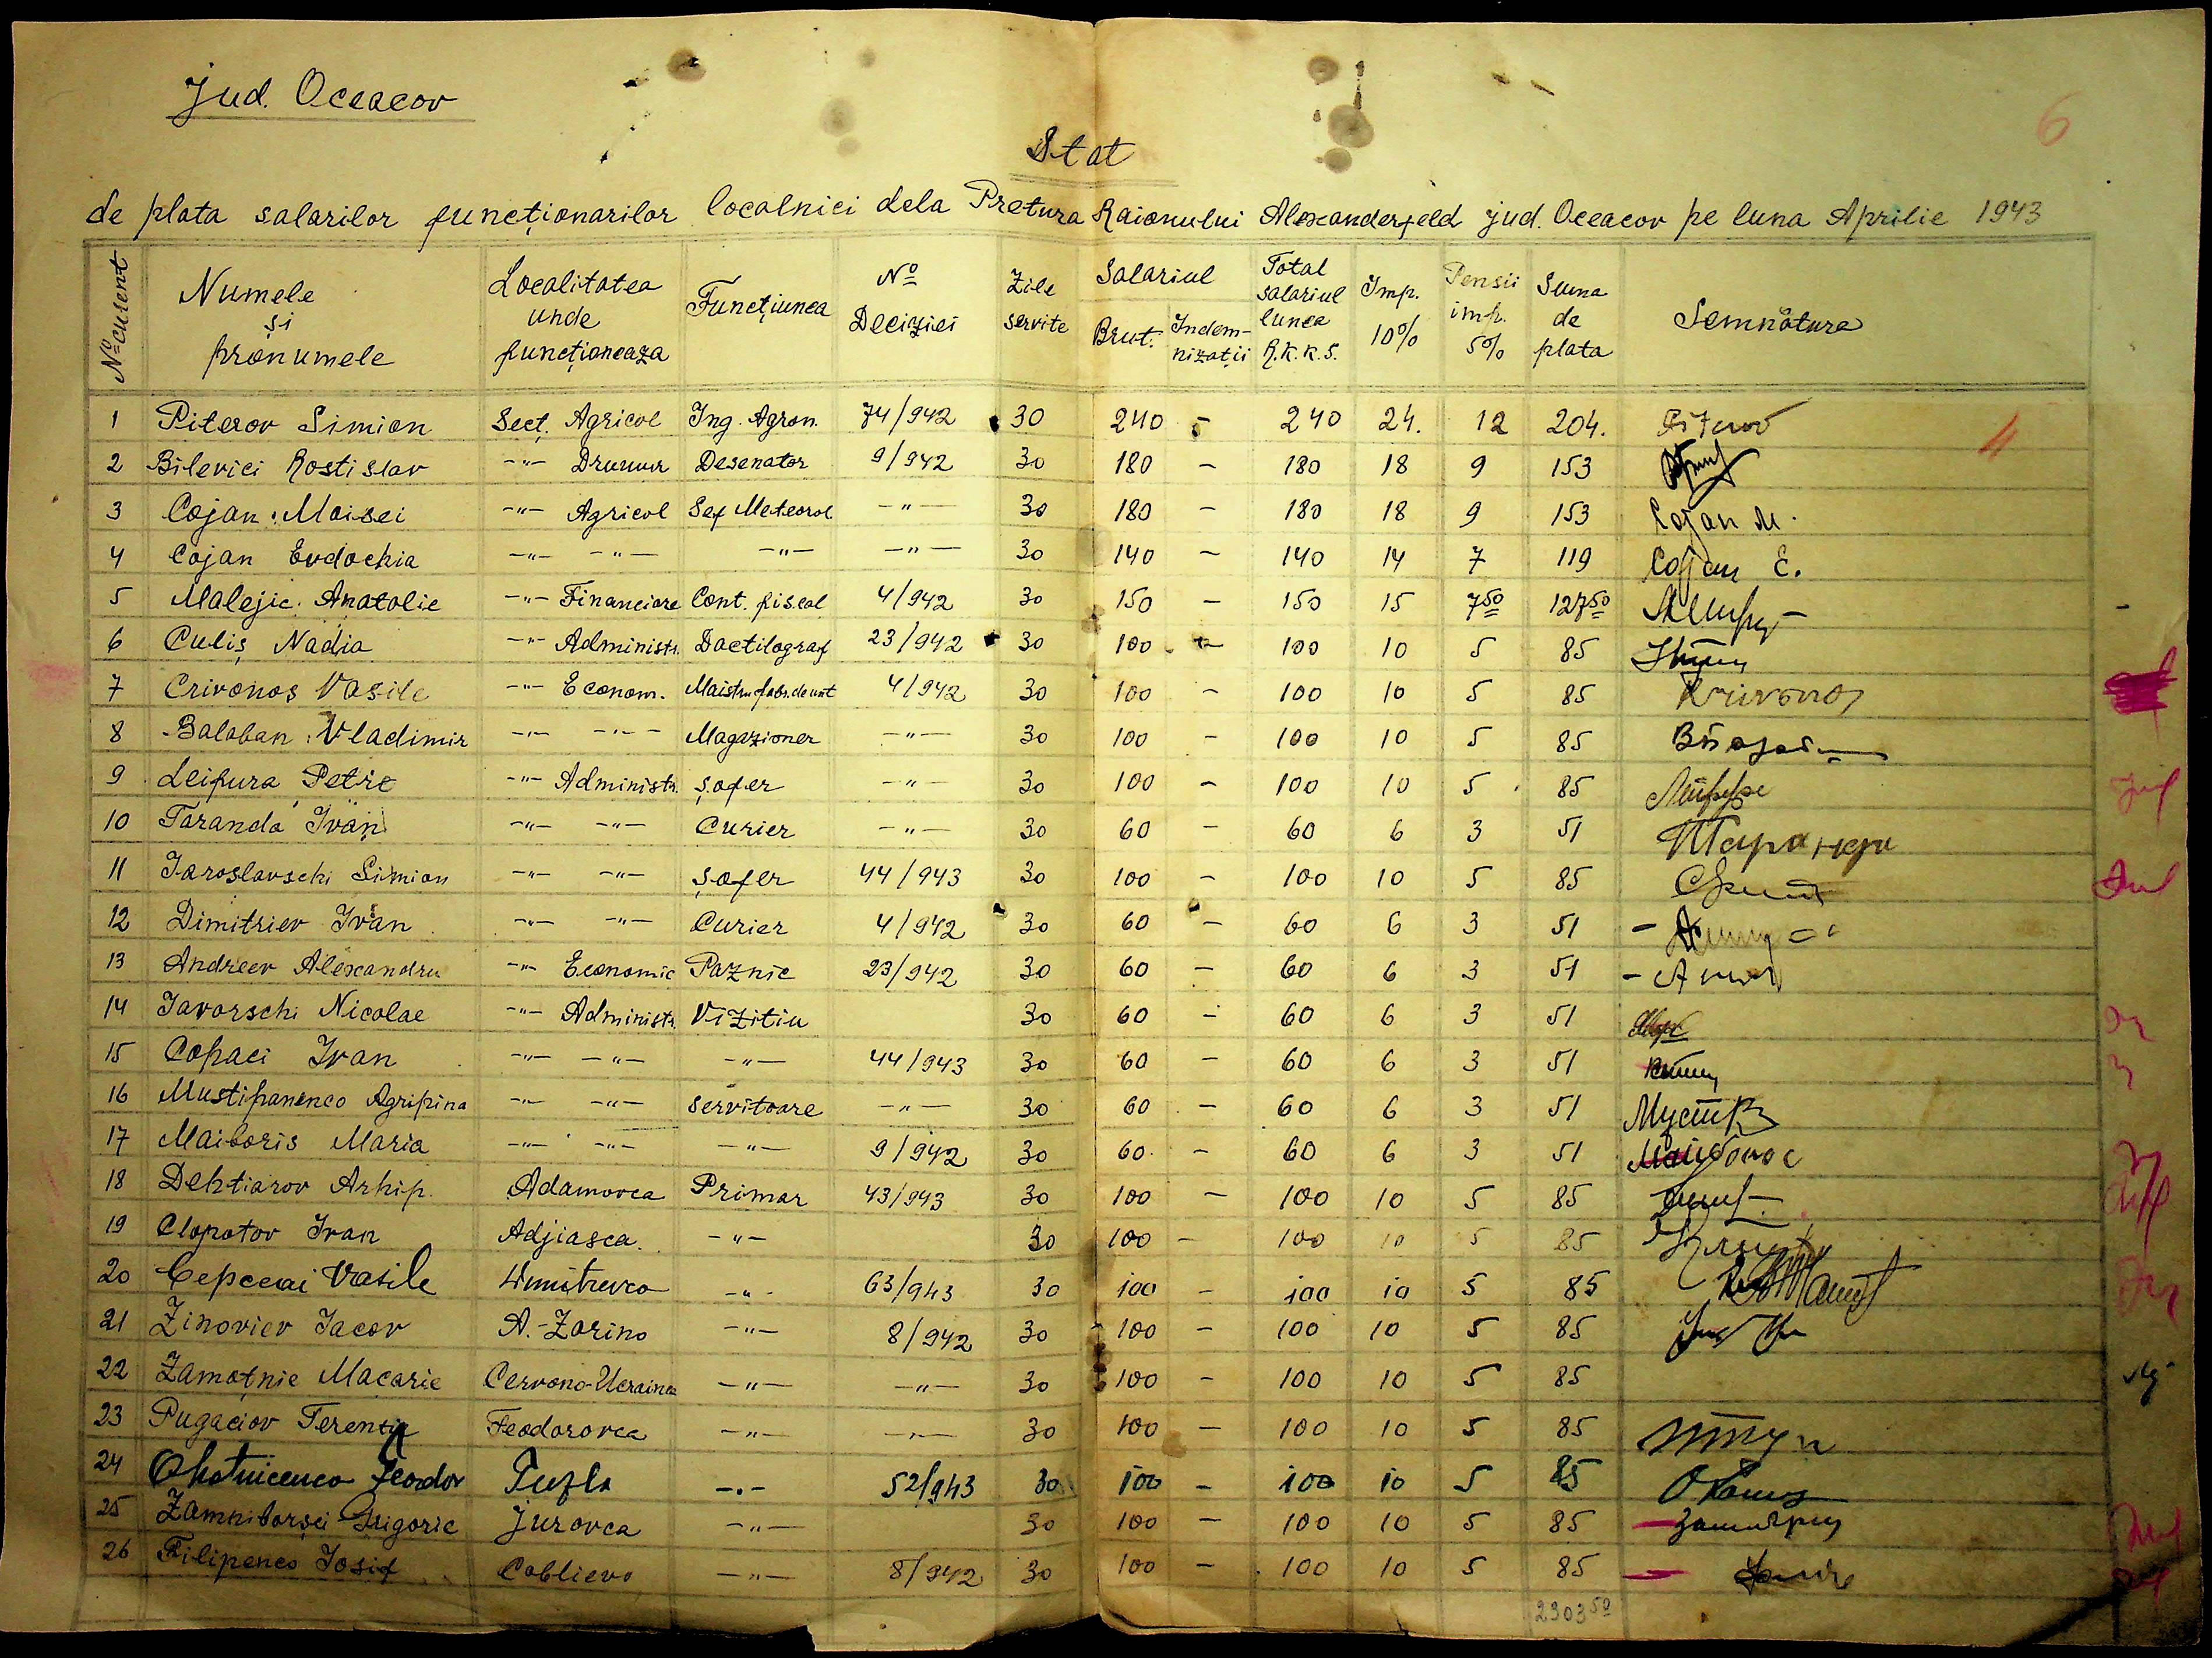 Jud. Oceacov
6
Stat
de plata salarilor funcționarilor localnici dela Pretura Raionului Alexanderfeld jud. Oceacov pe luna Aprilie 1943
Nº curent | Numele și pronumele | Localitatea unde funcționeaza | Funcțiunea | Nº Deciziei | Zile servite | Salariul Brut. | Indem-nizații | Total salariul lunea R.K.K.S. | Imp. 10% | Pensii imp. 5% | Suma de plata | Semnătura
1 Piterov Simion Secț. Agricol Ing. Agron. 74/942 30 240 - 240 24. 12 204. 4
2 Bilevici Rostislav -"- Drumur Desenator 9/942 30 180 - 180 18 9 153
3 Cojan Moisei -"- Agricol Sef Meteorol. -"- 30 180 - 180 18 9 153 Cojan M.
4 Cojan Evdochia -"- -"- -"- -"- 30 140 - 140 14 7 119 Cojan E.
5 Malejic Anatolie -"- Financiare Cont. fiscal 4/942 30 150 - 150 15 7 50 127 50
6 Culiș Nadia -"- Administr. Dactilograf 23/942 30 100 - 100 10 5 85
7 Crivonos Vasile -"- Econom. Maistru fabr. de unt 4/942 30 100 - 100 10 5 85 Krivonos
8 Balaban Vladimir -"- -"- Magazioner -"- 30 100 - 100 10 5 85
9 Leifura Petre -"- Administr. șofer -"- 30 100 - 100 10 5 85
10 Taranda Ivan -"- -"- Curier -"- 30 60 - 60 6 3 51 Таранда
11 Iaroslavschi Simion -"- -"- șofer 44/943 30 100 - 100 10 5 85
12 Dimitriev Ivan -"- -"- Curier 4/942 30 60 - 60 6 3 51
13 Andreev Alexandru -"- Economic Paznic 23/942 30 60 - 60 6 3 51
14 Iavorschi Nicolae -"- Administr. Vizitiu 30 60 - 60 6 3 51
15 Copaci Ivan -"- -"- -"- 44/943 30 60 - 60 6 3 51
16 Mustipanenco Agripina -"- -"- servitoare -"- 30 60 - 60 6 3 51
17 Maiboris Maria -"- -"- -"- 9/942 30 60 - 60 6 3 51
18 Dehtiarov Arhip. Adamovca Primar 43/943 30 100 - 100 10 5 85
19 Clopotov Ivan Adjiasca -"- 30 100 - 100 10 5 85
20 Cepceai Vasile Dmitrevca -"- 63/943 30 100 - 100 10 5 85
21 Zinoviev Iacov A.-Zorino -"- 8/942 30 100 - 100 10 5 85
22 Zamotnic Macarie Cervono-Ucrainca -"- -"- 30 100 - 100 10 5 85
23 Pugaciov Terentie Feodorovca -"- -"- 30 100 - 100 10 5 85
24 Ohotnicenco Feodor Tuzla -"- 52/943 30 100 - 100 10 5 85
25 Zamniborșci Grigorie Jurovca -"- 30 100 - 100 10 5 85
26 Filipenco Iosif Coblievo -"- 8/942 30 100 - 100 10 5 85
2303 50